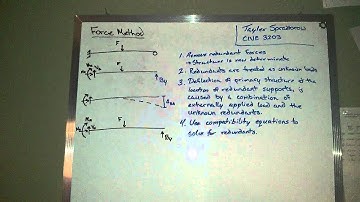 Force Method
Tayler
CIVE 3203
F
1. Remove redundant forces
→ Structure is now determinate
2. Redundants are treated as unknown loads
3. Deflection of primary structure at the
location of redundant supports, is
caused by a combination of
externally applied load and the
unknown redundants.
4. Use compatibility equations to
solve for redundants.
F
By
F
By